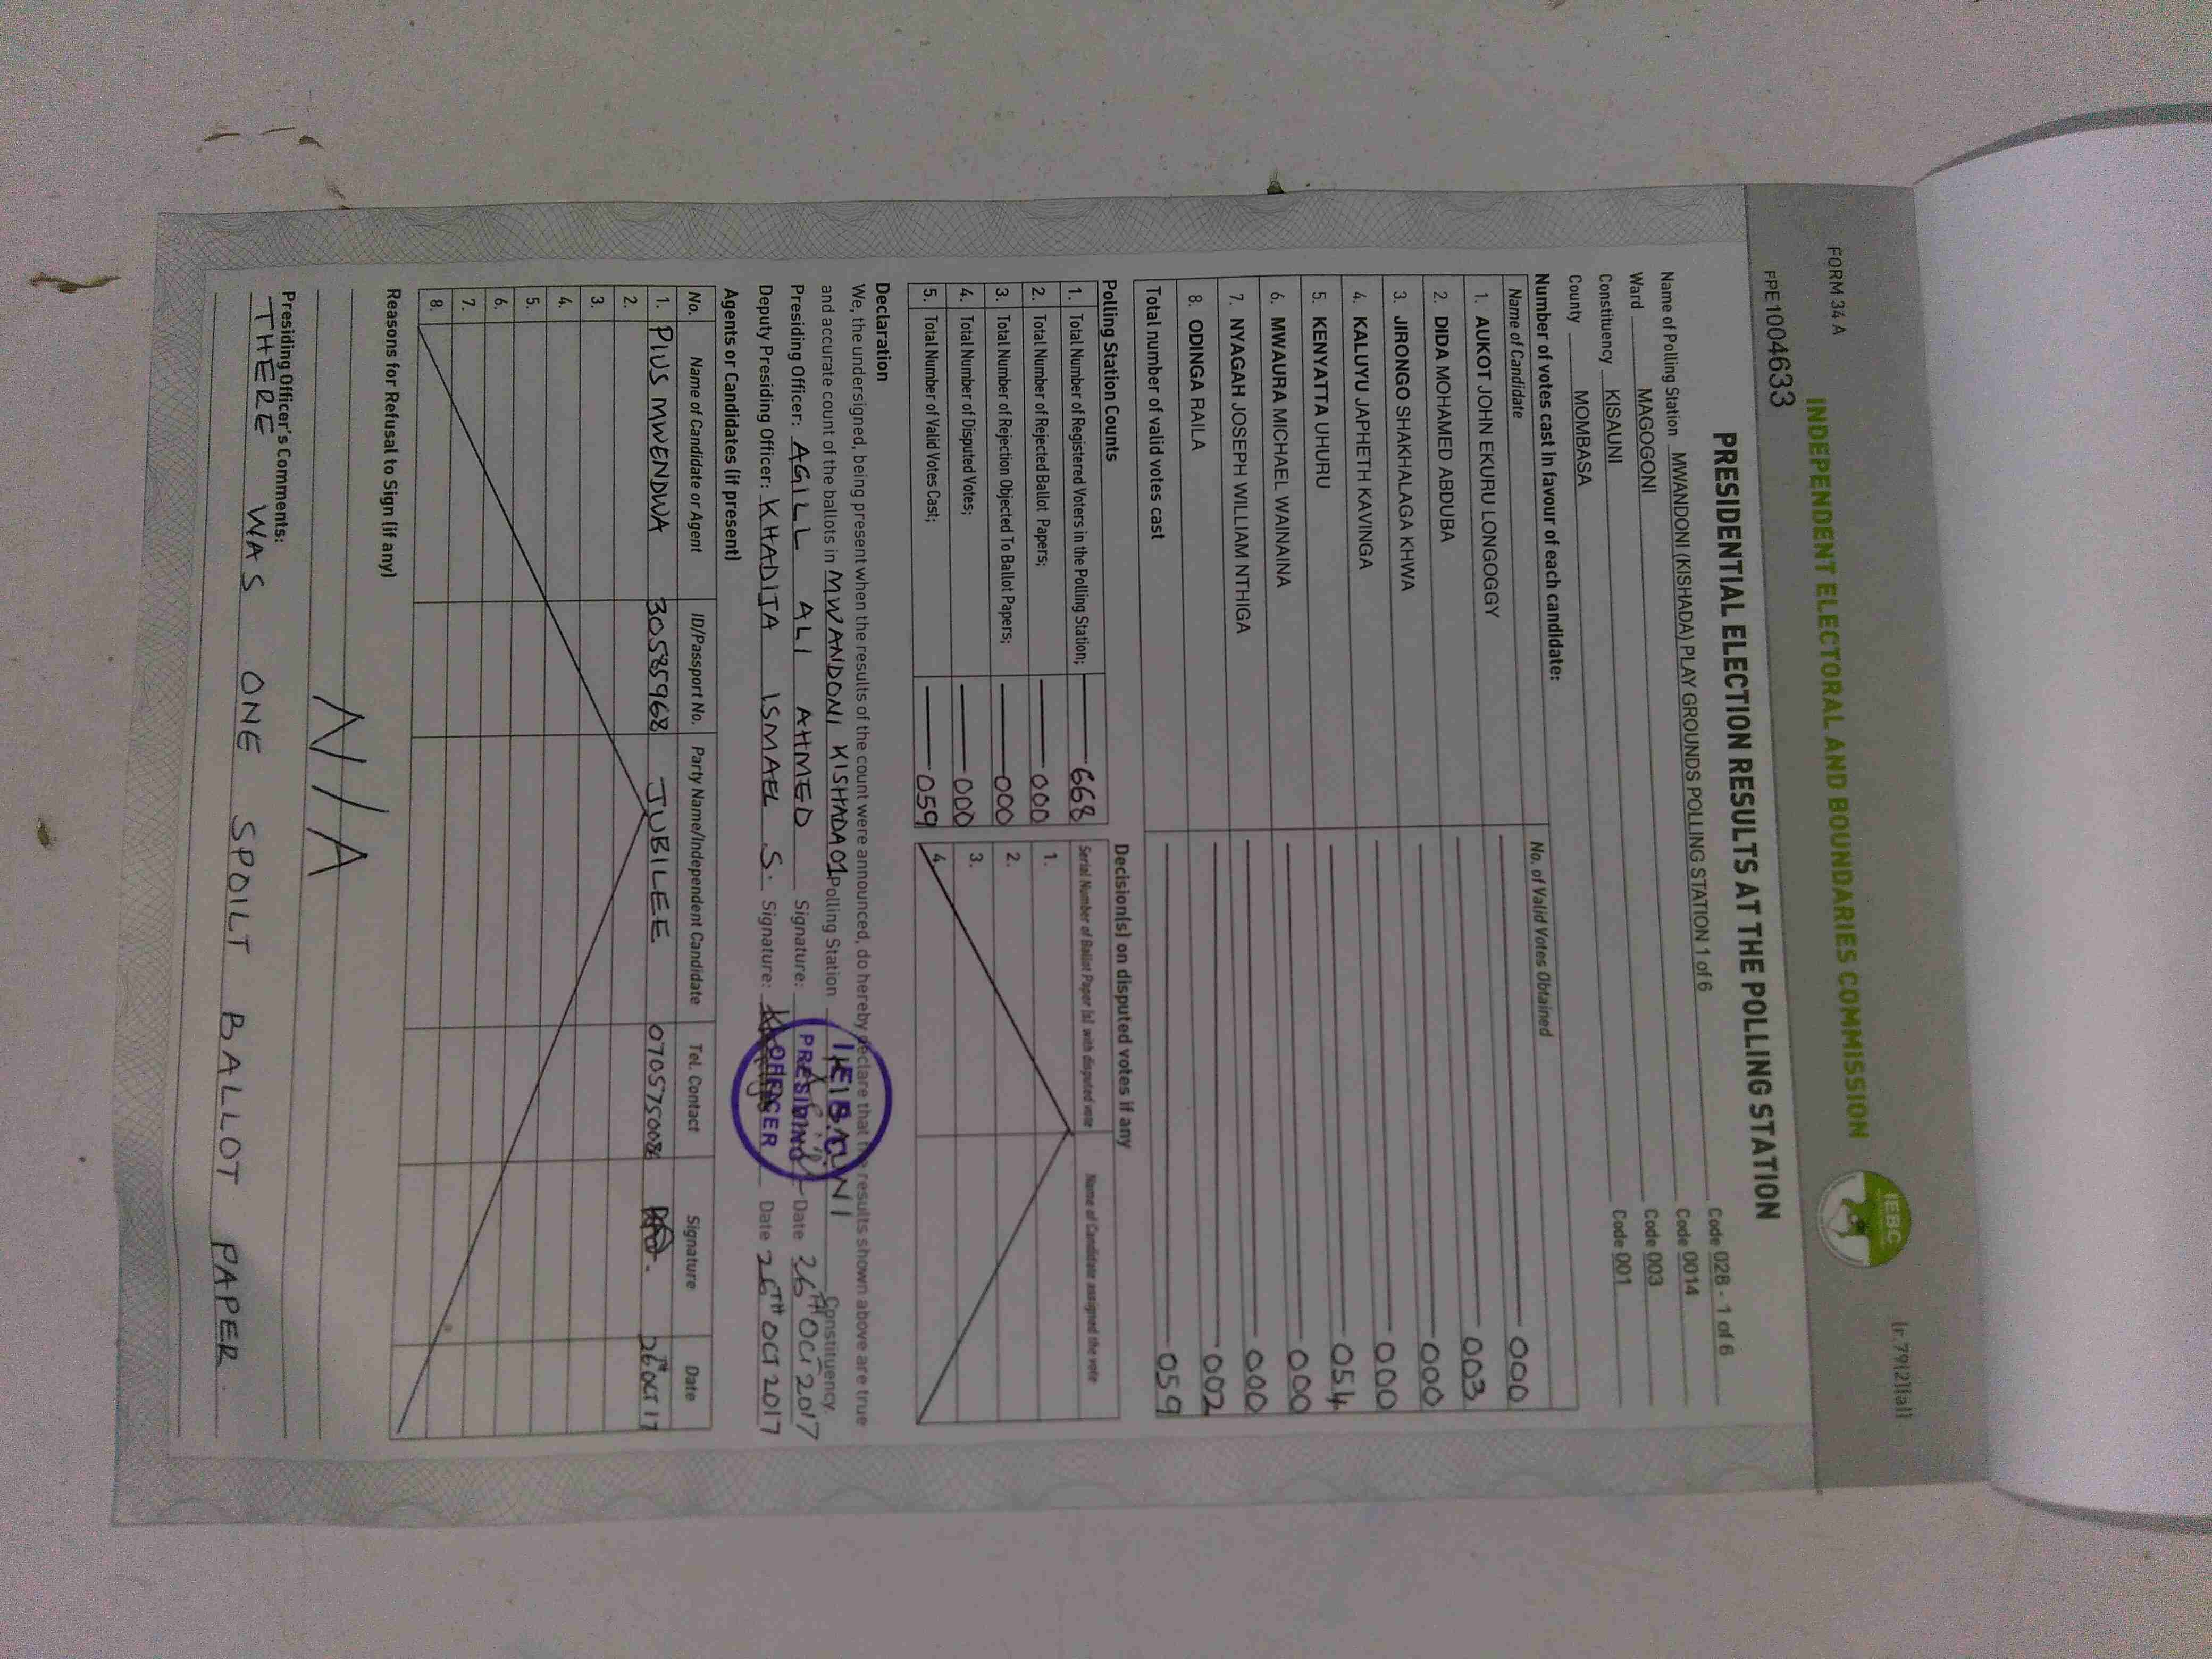 FORM 34 A
(r.79(2)(a))
INDEPENDENT ELECTORAL AND BOUNDARIES COMMISSION
IEBC
FPE1004633
PRESIDENTIAL ELECTION RESULTS AT THE POLLING STATION
Name of Polling Station MWANDONI (KISHADA) PLAY GROUNDS POLLING STATION 1 of 6 Code 028 - 1 of 6
Ward MAGOGONI Code 0014
Constituency KISAUNI Code 003
County MOMBASA Code 001
Number of votes cast in favour of each candidate:
Name of Candidate No. of Valid Votes Obtained
1. AUKOT JOHN EKURU LONGOGGY 000
2. DIDA MOHAMED ABDUBA 003
3. JIRONGO SHAKHALAGA KHWA 000
4. KALUYU JAPHETH KAVINGA 000
5. KENYATTA UHURU 054
6. MWAURA MICHAEL WAINAINA 000
7. NYAGAH JOSEPH WILLIAM NTHIGA 000
8. ODINGA RAILA 002
Total number of valid votes cast 059
Polling Station Counts
1. Total Number of Registered Voters in the Polling Station; 668
2. Total Number of Rejected Ballot Papers; 000
3. Total Number of Rejection Objected To Ballot Papers; 000
4. Total Number of Disputed Votes; 000
5. Total Number of Valid Votes Cast; 059
Decision(s) on disputed votes if any
Serial Number of Ballot Paper (s) with disputed vote Name of Candidate assigned the vote
1.
2.
3.
4.
Declaration
We, the undersigned, being present when the results of the count were announced, do hereby declare that the results shown above are true
and accurate count of the ballots in MWANDONI KISHADA 01 Polling Station KISAUNI Constituency.
Presiding Officer: AGILL ALI AHMED Signature: Date 26TH OCT 2017
Deputy Presiding Officer: KHADIJA ISMAEL S. Signature: Date 26TH OCT 2017
I.E.B.C.
PRESIDING
OFFICER
Agents or Candidates (if present)
No. Name of Candidate or Agent ID/Passport No. Party Name/Independent Candidate Tel. Contact Signature Date
1. PIUS MWENDWA 30585968 JUBILEE 0705750086 26TH OCT 17
2.
3.
4.
5.
6.
7.
8.
Reasons for Refusal to Sign (if any)
N/A
Presiding Officer's Comments:
THERE WAS ONE SPOILT BALLOT PAPER.